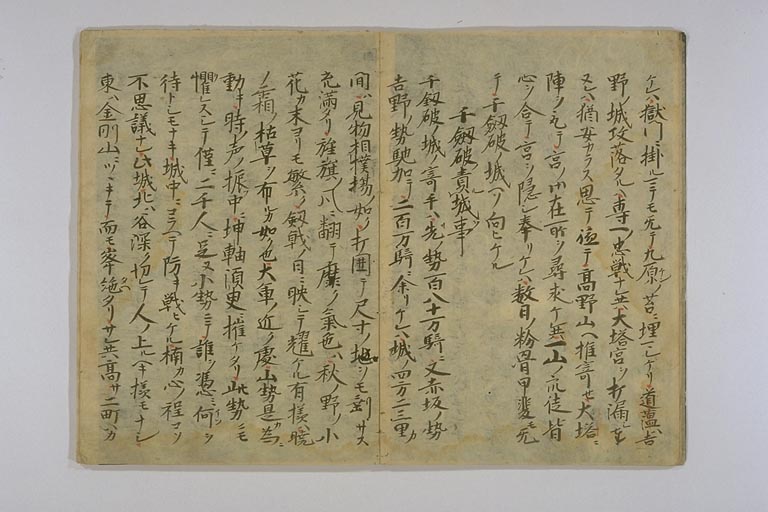 ケレハ獄門ニ掛ルニテモ无テ九原ノ苔ニ埋マレケリ道薀ハ吉
野ノ城攻落タルハ専一ノ忠戦ナレ共大塔宮ヲ打漏シ奉
ヌレハ猶安カラス思テ頓テ高野山ヘ推寄セ大塔ニ
陣ヲシテ宮ノ御在所ヲ尋求ケレ共一山ノ衆徒皆
心ヲ合テ宮ヲ隠シ奉リケレハ数日ノ粉骨甲斐モ无
テ千釼破ノ城ヘソ向ヒケル
千釼破責城事
千釼破ノ城ノ寄手ハ先ノ勢百八十万騎ニ又赤坂ノ勢
吉野ノ勢馳加テ二百万騎ニ余リケレハ城ノ四方二三里カ
間ハ見物相撲場ノ如ク打囲テ尺寸ノ地ヲシモ剰サス
充満タリ旌旗ノ風ニ翻テ靡ク気色ハ秋ノ野ノ小
花カ末ヨリモ繁ク釼戟ノ日ニ映シテ耀ケル有様ハ暁
ノ霜ノ枯草ニ布カ如ク也大軍ノ近ク処山勢是カ為ニ
動キ時ノ声ノ振中ニ坤軸須臾ニ摧ケタリ此勢ニモ
懼レスシテ僅ニ二千人ニ足ヌ小勢ニテ誰ヲ憑ミ何ヲ
待トシモナキ城中ニコラヘテ防キ戦ヒケル楠カ心程コソ
不思議ナレ此城北ハ谷深ク切レテ人ノ上ルヘキ様モナシ
東ハ金剛山ニツヽキテ而モ峯絶タリサレ共高サ二町ハカ